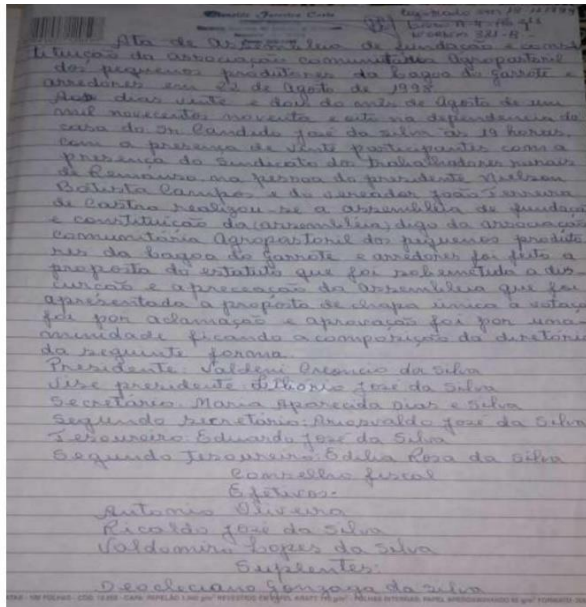 Ata de assembleia de fundação e consti
tuição da associação comunitaria Agropastoril
dos pequenos produtores da lagoa do garrote e
arredores em 22 de Agosto de 1998
Aos dias vinte e dois do mês de Agosto de um
mil novecentos noventa e oito na dependencia da
casa do sr. Candido José da silva as 19 horas,
com a presença de vinte participantes com a
presença do Sindicato dos trabalhadores rurais
de Remanso na pessoa do presidente Nielson
Batista Campos e do vereador João Ferreira
de Castro realizou-se a assembleia de fundação
e constituição da (assembleia) digo da associação
comunitária Agropastoril dos pequenos produto
res da lagoa do garrote e arredores foi feito a
proposta do estatuto que foi submetida a dis
curcão e apreceação da assembleia que foi
apresentada a proposta de chapa unica a votação
foi por aclamação e aprovação foi por una
minidade ficando a composição da diretoria
da seguinte forma.
Presidente: Valdeni da Silva
Vise presidente: José da Silva
Secretário: Maria Aparecida Dias e Silva
Segundo secretário: Ariosvaldo José da Silva
Tesoureiro: Eduardo José da Silva
Segundo Tesoureiro: Edilia Rosa da Silva
Conselho fiscal
Efetivos-
Antonio Oliveira
Ricardo José da Silva
Valdomiro Lopes da Silva
Suplentes:
Deocleciano Gonzaga da silva